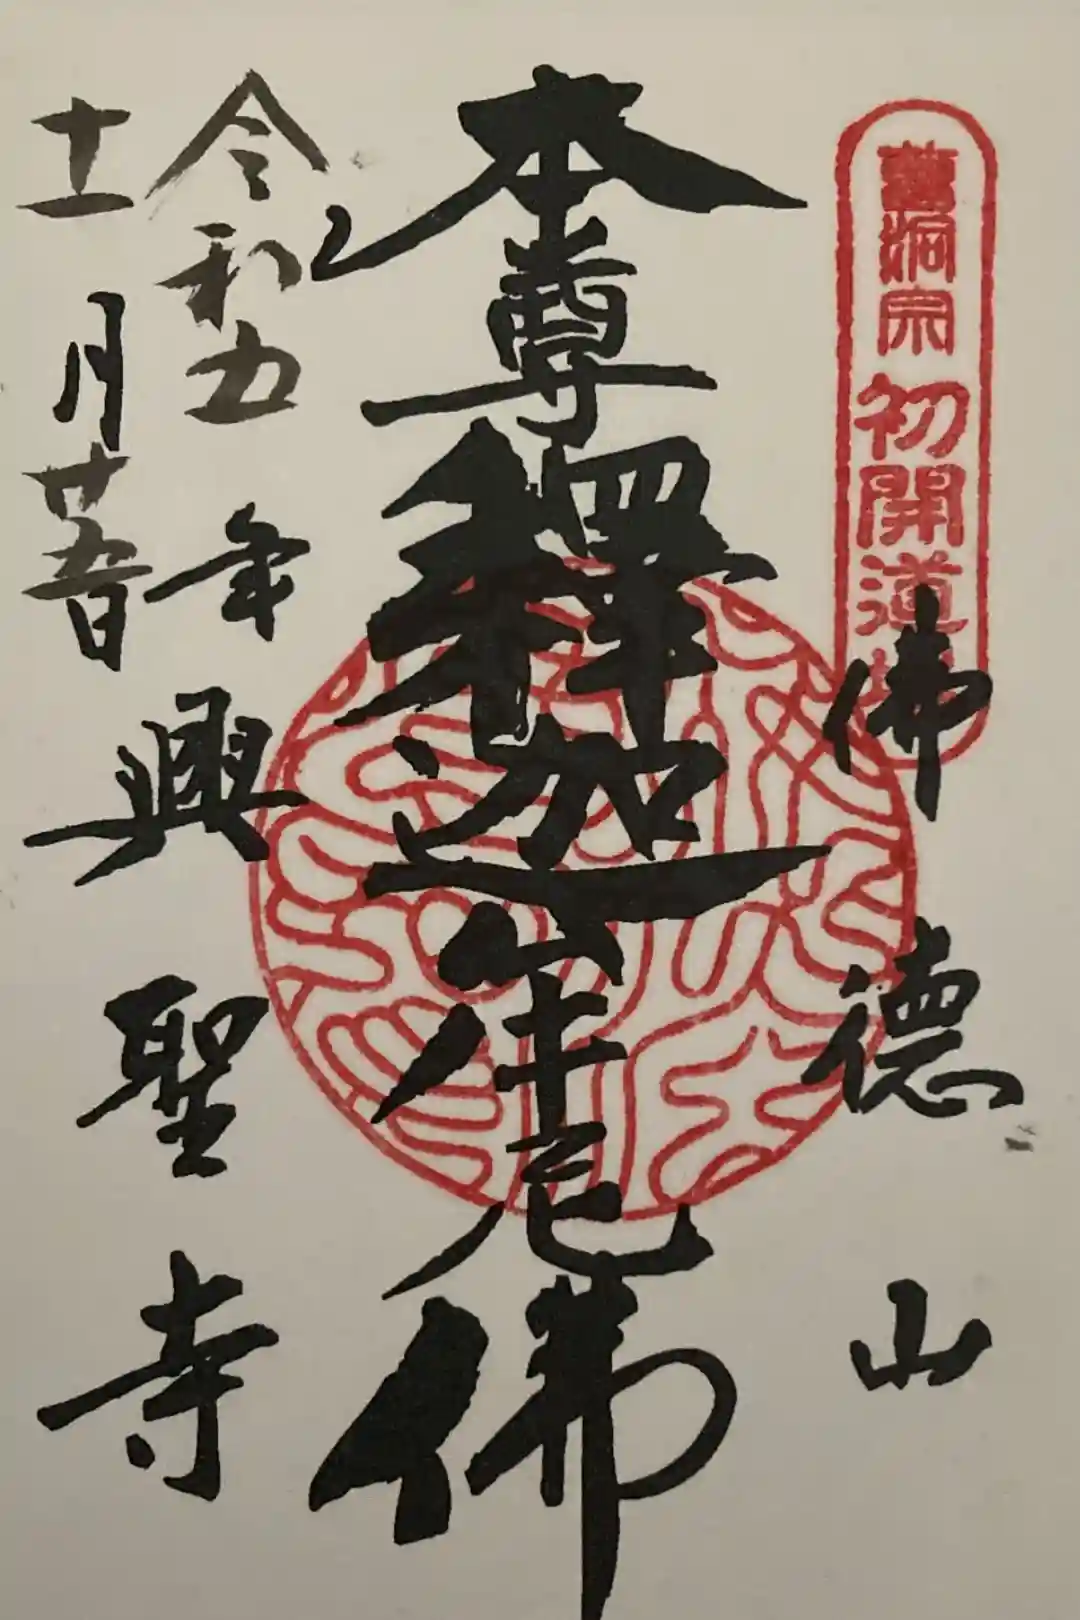 曹洞宗 初開道場
佛德山
本尊釋迦牟尼佛
令和五年
十一月廿五日
興聖寺